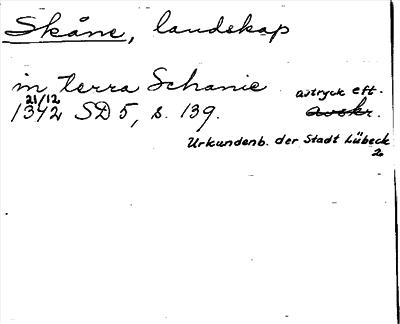 Skåne, landskap
in terra Schanie avtryck eft.
21/12
1342 SD 5, s. 139. avskr.
Urkundenb. der Stadt Lübeck
2